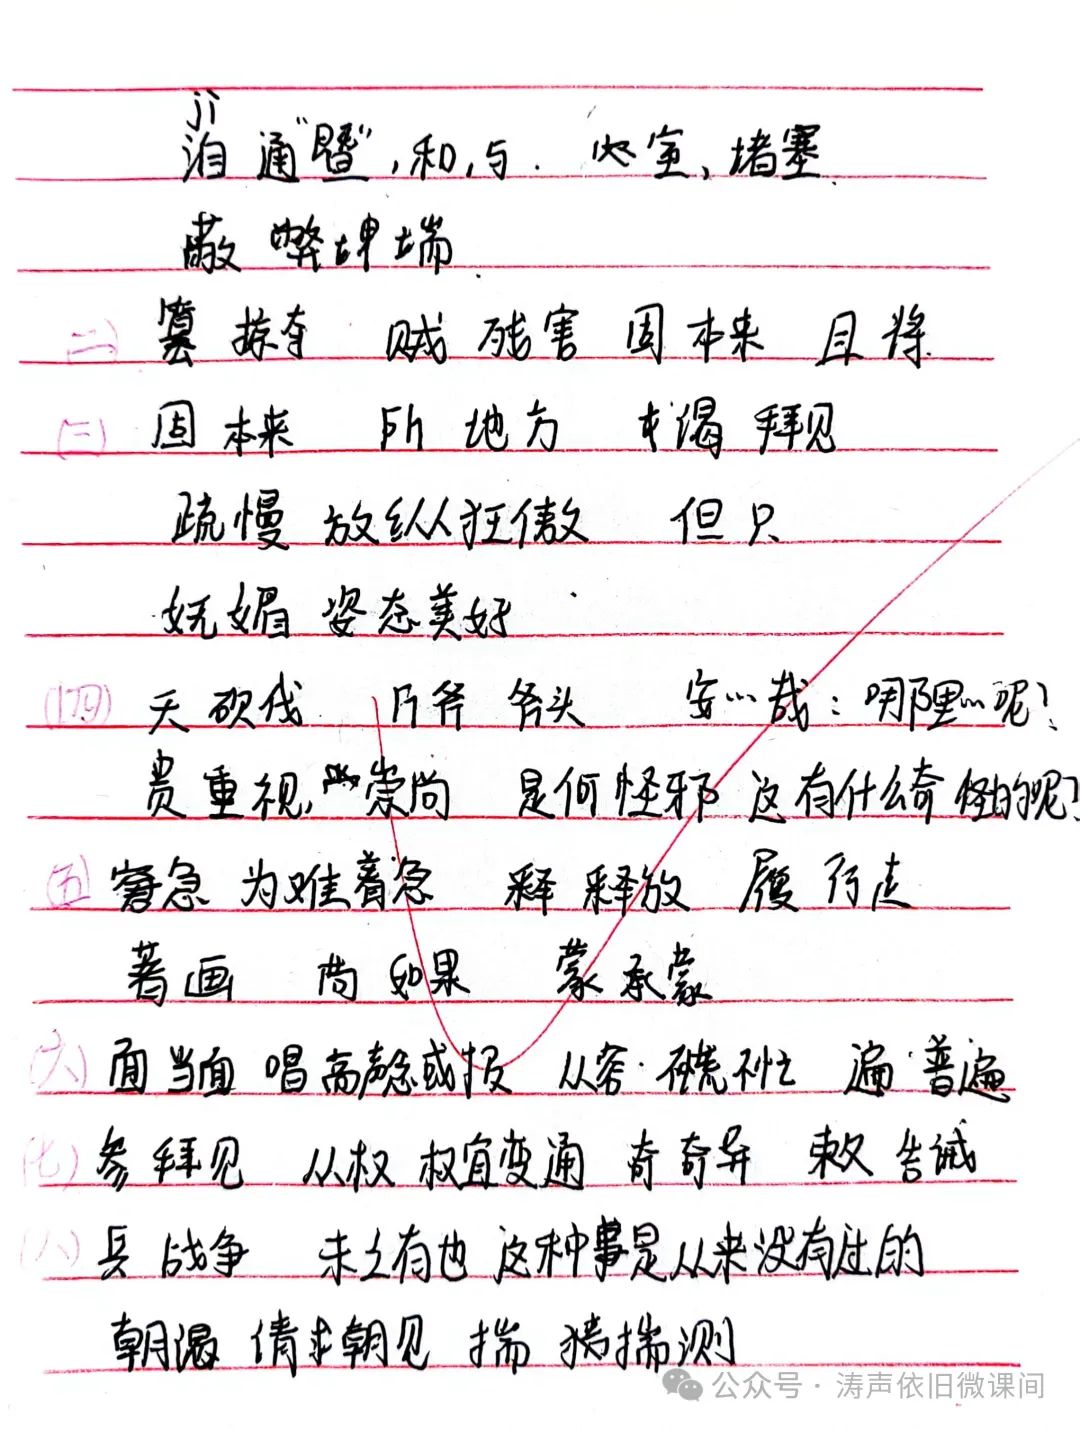 jì
洎 通"暨",和,与. 室,堵塞
蔽 弊 端
二) 篡 掠夺 贼 残害 固 本来 且 将
(三) 固 本来 所 地方 求谒 拜见
疏慢 放纵狂傲 但 只
妩媚 姿态美好
(四) 夭 砍伐 斤斧 斧头 安…哉:哪里…呢?
贵 重视, 崇尚 是何怪邪 这有什么奇怪的呢?
(五) 窘急 为难着急 释 释放 履 行走
著画 尚 如果 蒙 承蒙
(六) 面 当面 唱 高声 或 从容·不慌不忙 遍·普遍
(七) 参 拜见 从权 权宜变通 奇 奇异 敕 告诫
(八) 兵 战争 未之有也 这种事是从来没有过的
朝谒 请求朝见 揣 猜揣测
公众号·涛声依旧微课间